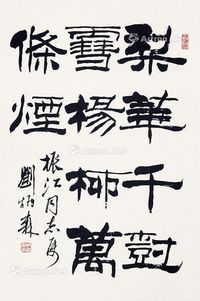 梨華千尌
雪楊柳萬
條煙
振江同志
劉炳森